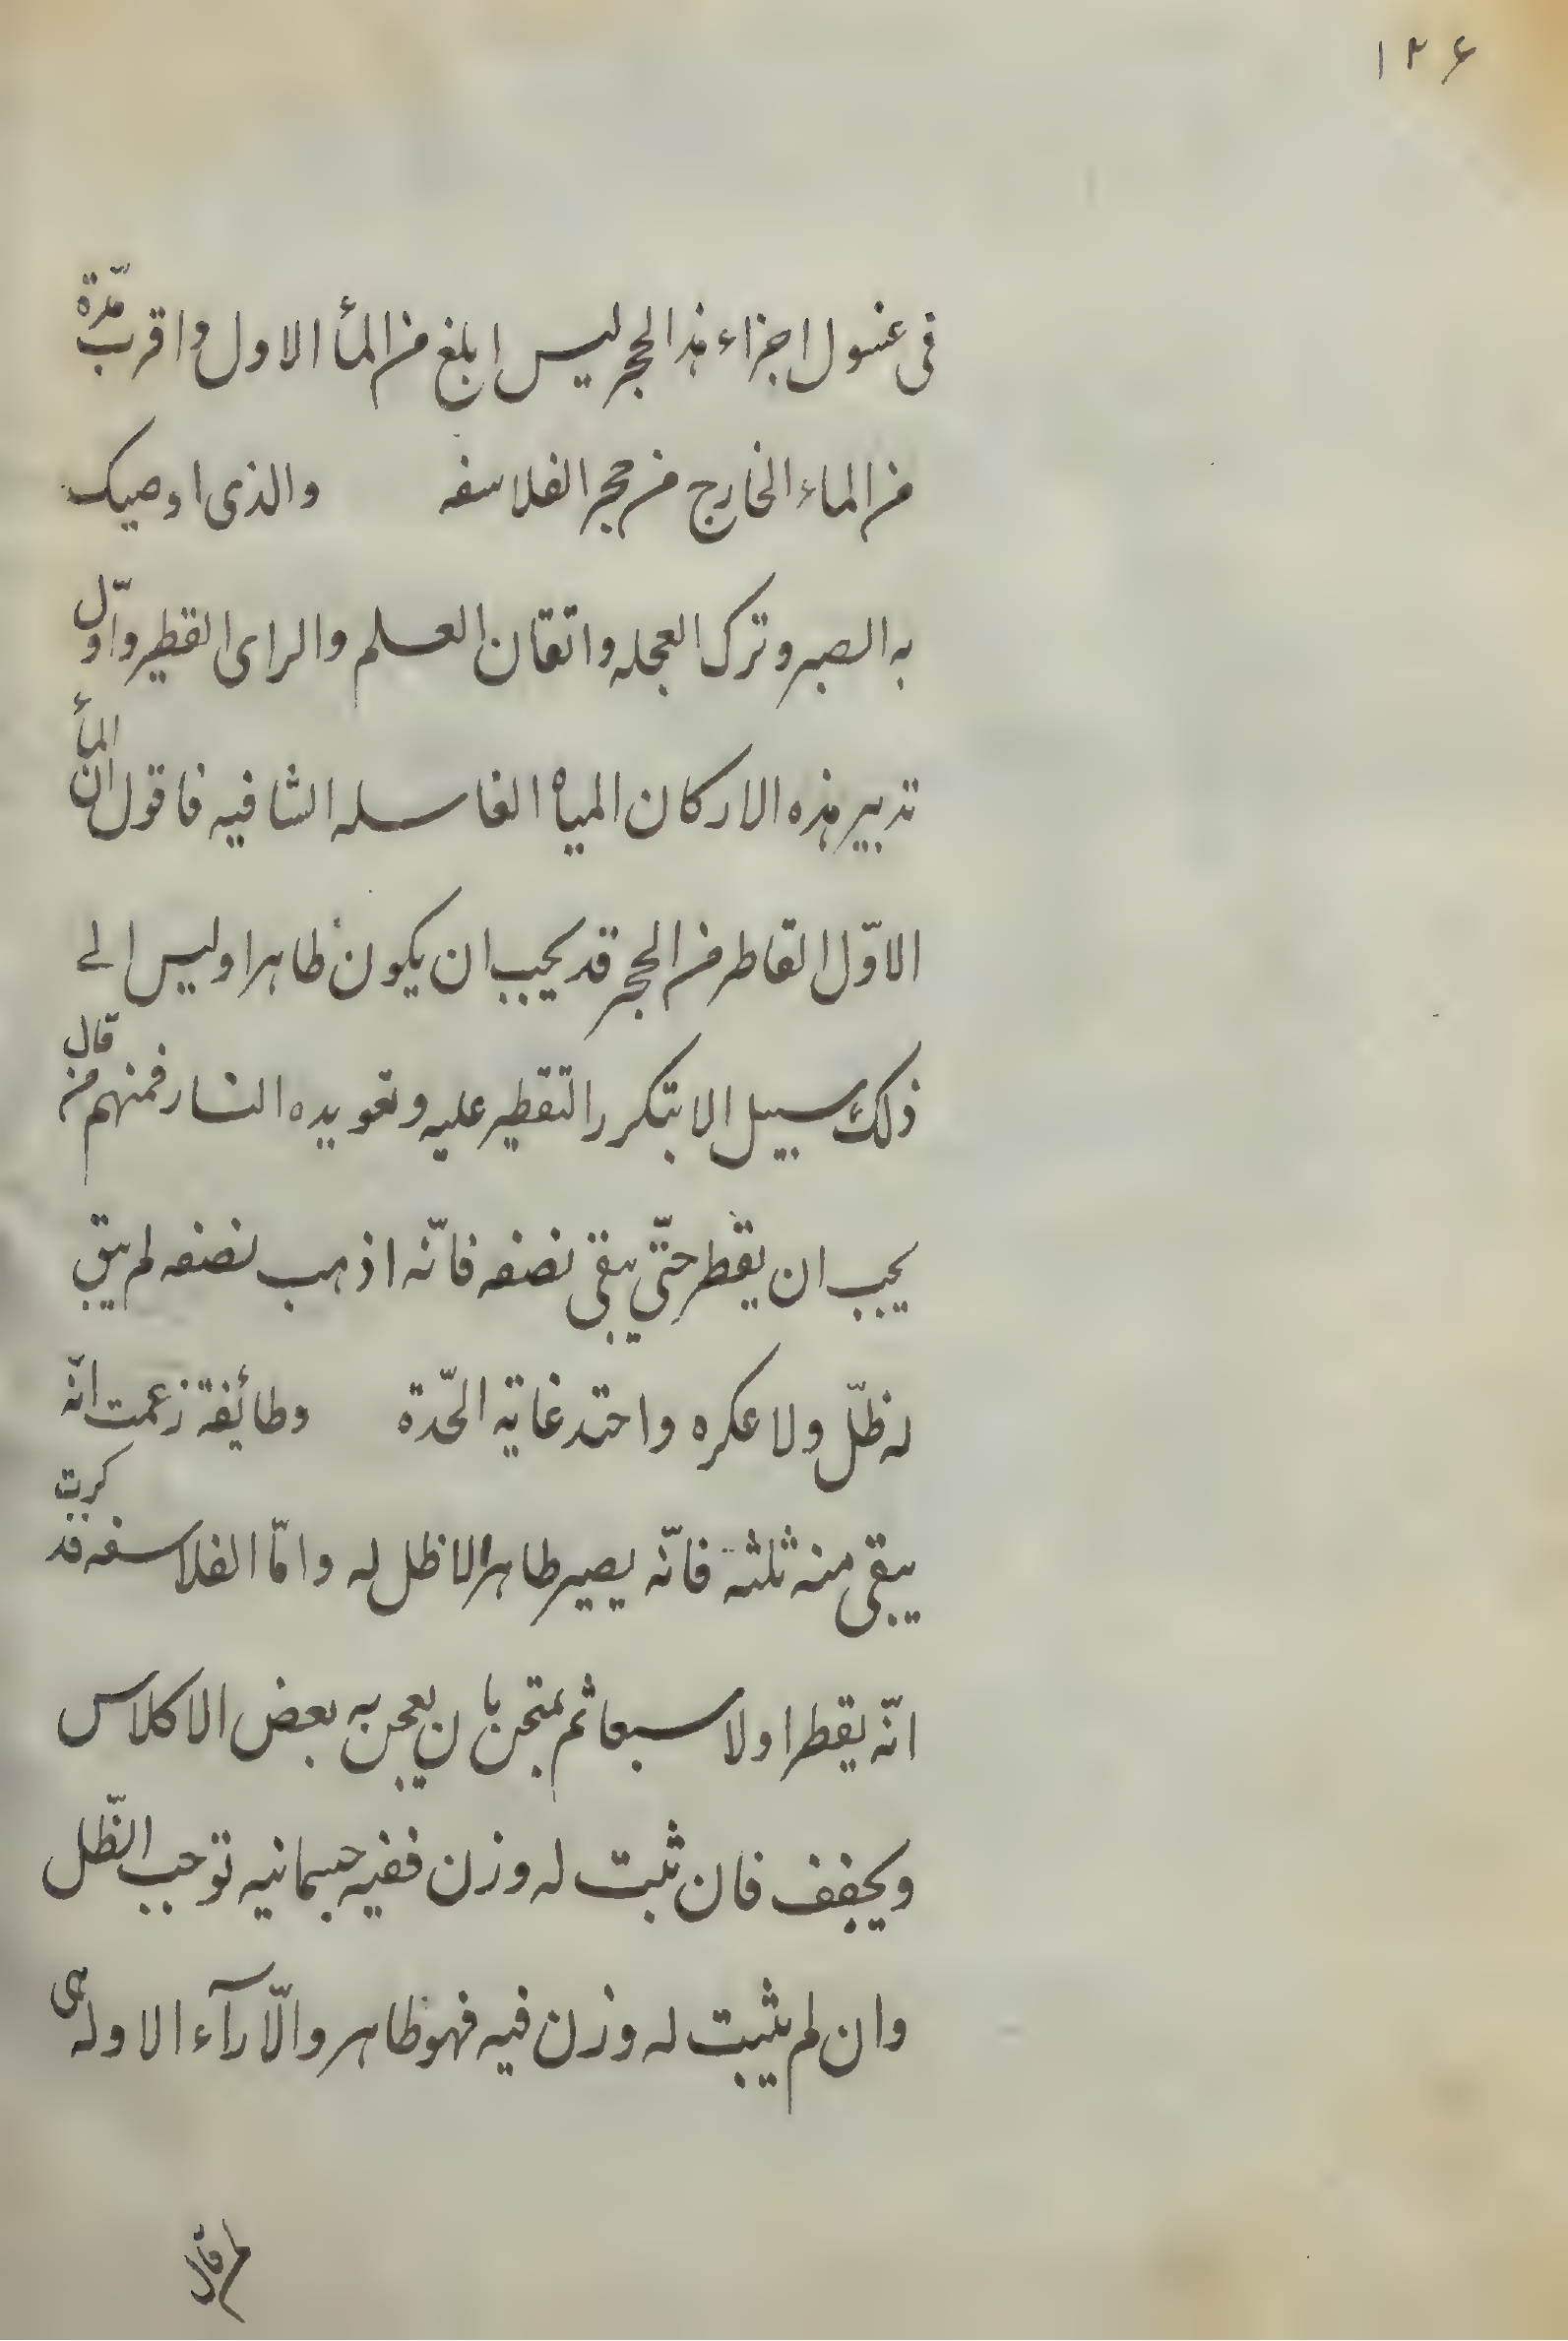 ۱۲۶
فى غسول اجزاء هذا الحجر ليس ابلغ من المأ الاول واقرب مدّة
من الماء الخارج من حجر الفلاسفه والذى اوصيك
به الصبر وترك العجله واتقان العلم والراى القطير واوّل
تدبير هذه الاركان المياه الغاسله الشافيه فاقول انّ المأ
الاوّل القاطر من الحجر قد يجب ان يكون ظاهرا وليس الے
ذلك سبيل الا بتكرر التقطير عليه وتعويده النار فمنهم من قال
يجب ان يقطر حتّى يبقى نصفه فانّه اذ ذهب نصفه لم يبق
له ظلّ ولا عكره واحتد غاية الحّدة وطائفة زعمت انّه
يبقى منه ثلثه فانّه يصير طاهرا لا ظل له وامّا الفلاسفه قد كرت
انّه يقطر اولا سبعا ثم يمتحن بان يعجن به بعض الاكلاس
ويجفف فان ثبت له وزن ففيه جسمانيه توجب الظّل
وان لم يثبت له وزن فيه فهو ظاهر والّا رآء الاوله هى